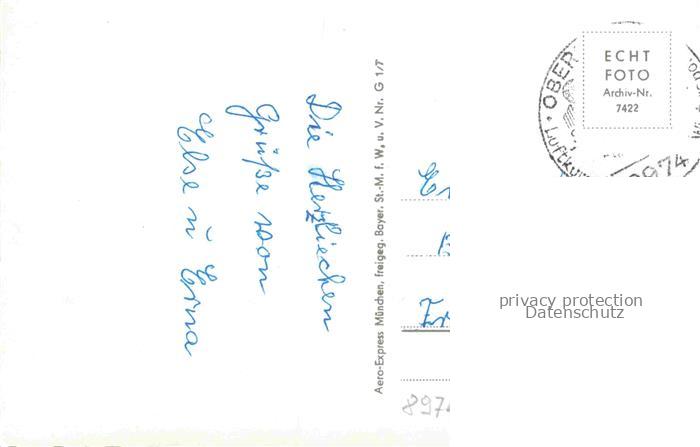 Die Herzliechen
Grüße von
Else u Erna
Aero-Express München, freigeg. Bayer. St.-M. f. W. u. V. Nr. G 1/7
ECHT
FOTO
Archiv-Nr.
7422
OBER
8974
privacy protection
Datenschutz
897